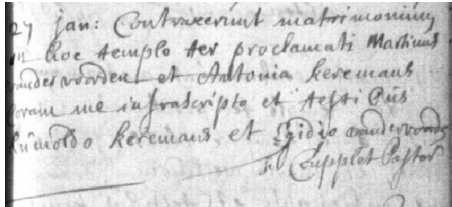 27 jan: Contraxerunt matrimonium
in hoc templo ter proclamati Martinus
vandervoorden et Antonia keremans
coram me infrascripto et testibus
Rumoldo keremans et Egidio vandervoorde
Supplet Pastor